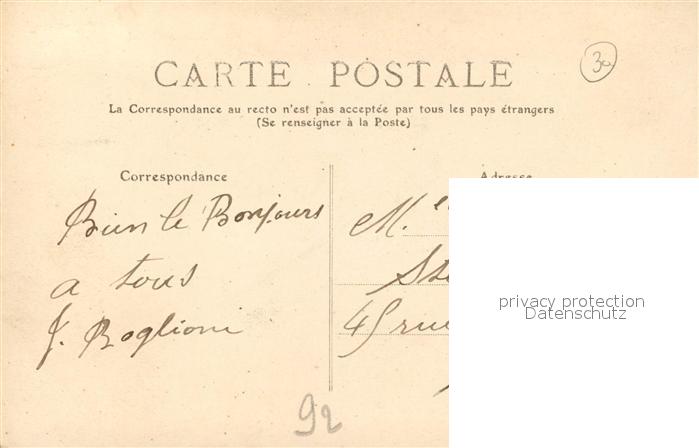 CARTE POSTALE
30
La Correspondance au recto n'est pas acceptée par tous les pays étrangers
(Se renseigner à la Poste)
Correspondance
Adresse
Bien le Bonjours
a tous
J. Boglioni
M.e
Ste
45 rue
privacy protection
Datenschutz
92